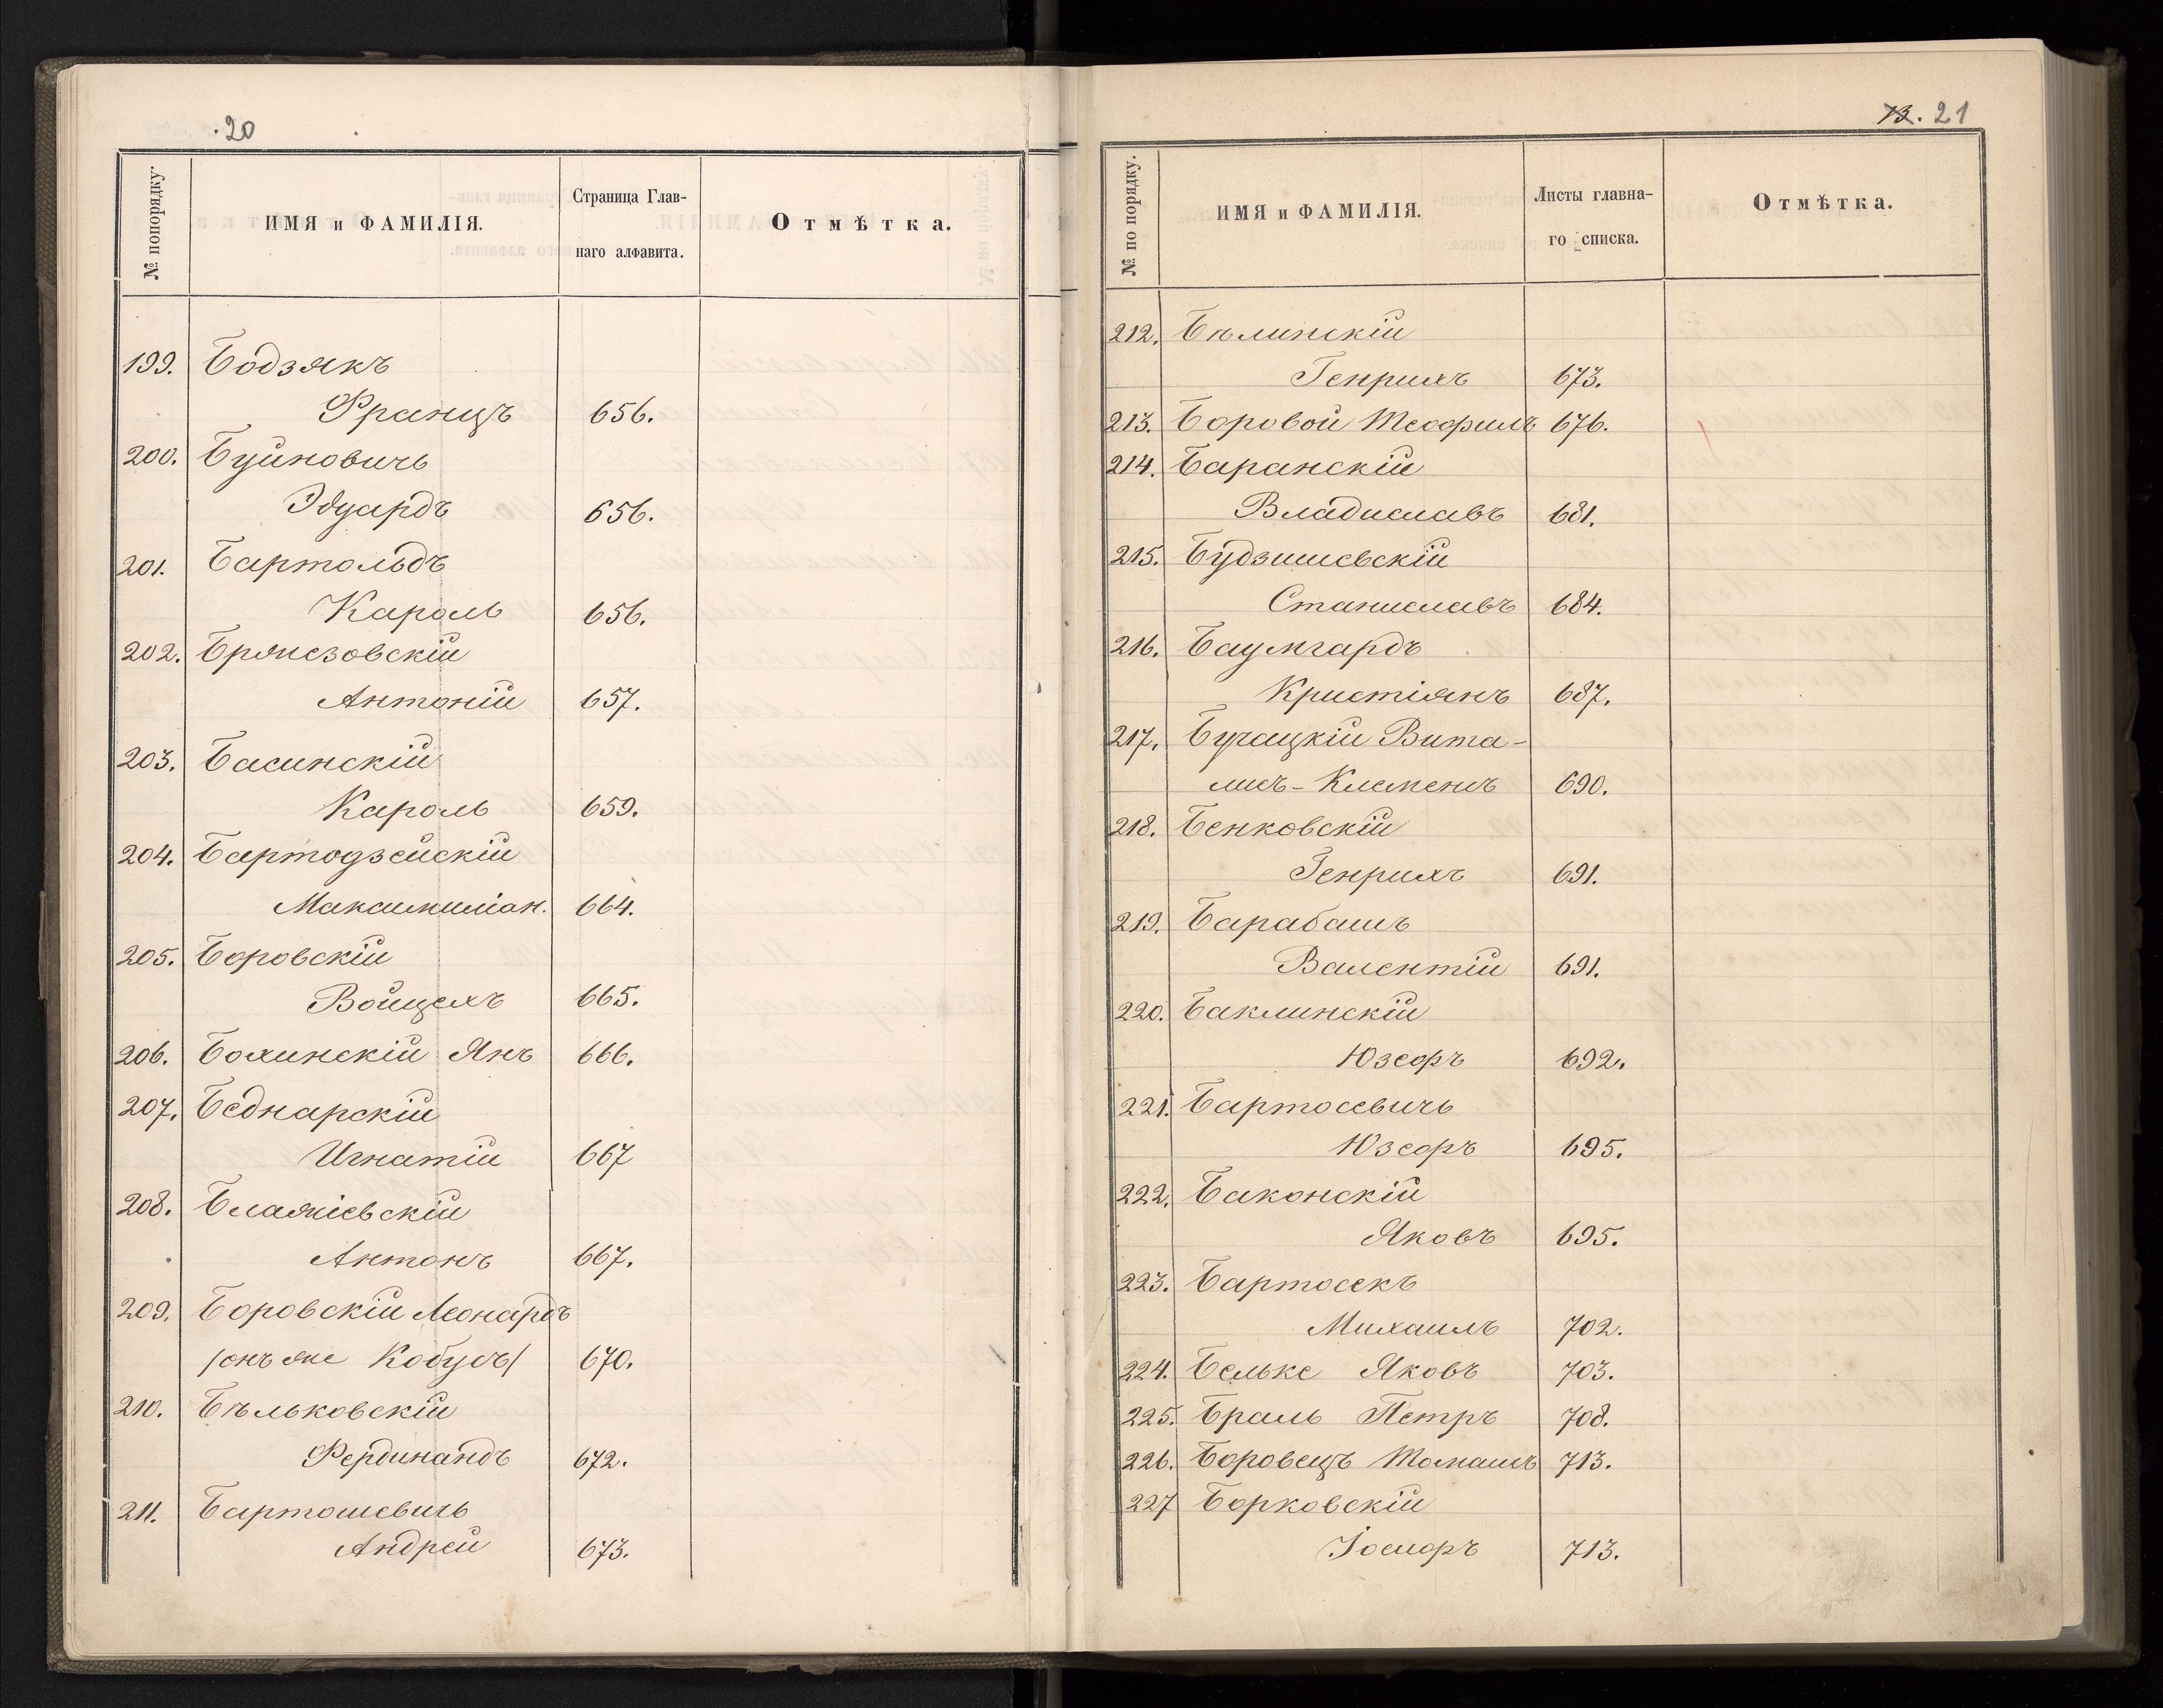 20
№ попорядку.
ИМЯ и ФАМИЛІЯ.
Страница Глав-
наго алфавита.
Отмѣтка.
199. Бодзякъ
Францъ 656.
200. Буйновичь
Эдуардъ 656.
201. Бартольдъ
Кароль 656.
202. Бржезовскій
Антоній 657.
203. Басинскій
Кароль 659.
204. Бартодзейскій
Максимиліан. 664.
205. Боровскій
Войцехъ 665.
206. Бохинскій Янъ 666.
207. Беднарскій
Игнатій 667
208. Блажіевскій
Антонъ 667.
209. Боровскій Леонардъ
/онъ же Кобусъ/ 670.
210. Бѣльковскій
Фердинандъ 672.
211. Бартошевичь
Андрей 673.
13. 21
№ по порядку.
ИМЯ и ФАМИЛІЯ.
Листы главна-
го списка.
Отмѣтка.
212. Бѣлинскій
Генрихъ 673.
213. Боровой Теофилъ 676.
214. Баранскій
Владиславъ 681.
215. Будзишевскій
Станиславъ 684.
216. Баумгардъ
Кристіянъ 687.
217. Бучацкій Вита-
лисъ-Клеменсъ 690.
218. Бенковскій
Генрихъ 691.
219. Барабашъ
Валентій 691.
220. Баклинскій
Юзефъ 692.
221. Бартосевичь
Юзефъ 695.
222. Баконскій
Яковъ 695.
223. Бартосекъ
Михаилъ 702.
224. Бельке Яковъ 703.
225. Браль Петръ 708.
226. Боровецъ Томашъ 713.
227 Борковскій
Іосифъ 713.